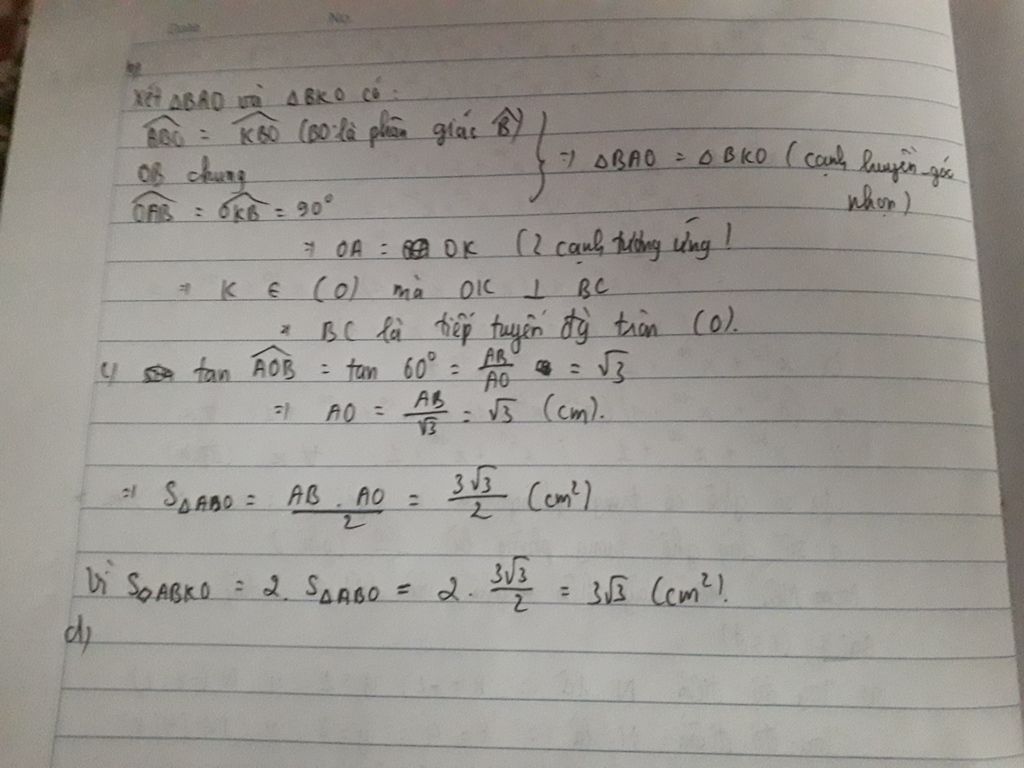 Date No.
Xét ΔBAO và ΔBKO có:
ABO = KBO (BO là phân giác B)
OB chung
OAB = OKB = 90°
⇒ ΔBAO = ΔBKO (cạnh huyền-góc nhọn)
⇒ OA = OK (2 cạnh tương ứng)
⇒ K ∈ (O) mà OK ⊥ BC
⇒ BC là tiếp tuyến đg tròn (O).
c) tan AOB = tan 60° = AB/AO = √3
⇒ AO = AB/√3 = √3 (cm).
⇒ S△ABO = AB . AO / 2 = 3√3/2 (cm²)
Vì S◇ABKO = 2. S△ABO = 2 . 3√3/2 = 3√3 (cm²).
d)